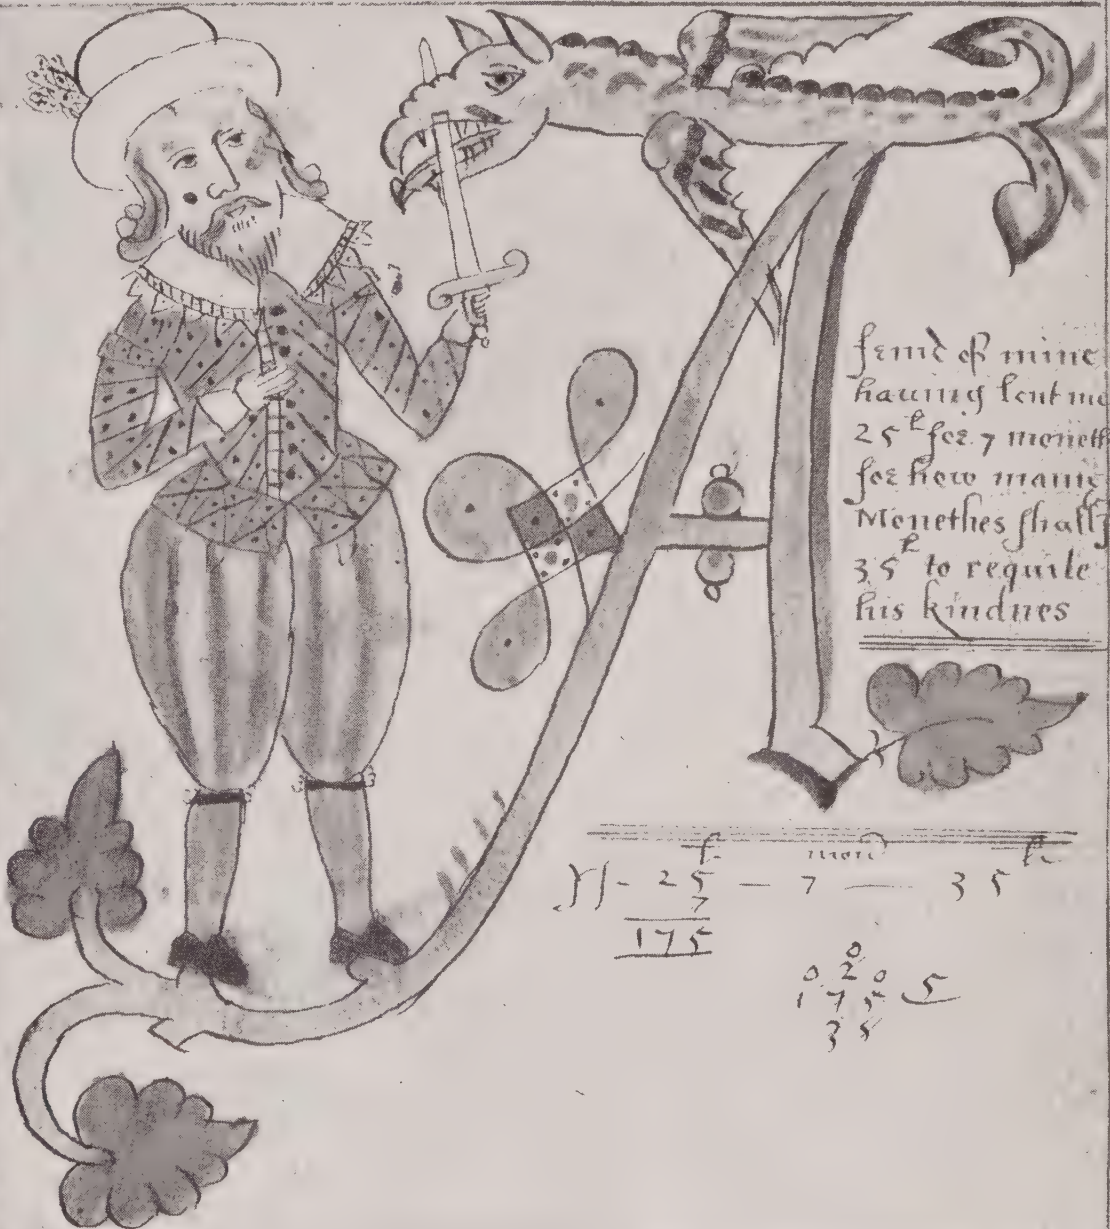 A
frind of mine
hauing lent me
25 li for 7 moneth
for how many
Monethes shall
35 li to requite
his kindnes
li mon li
If - 25 — 7 — 35
7
175
0
0 2 0
1 7 5 5
3 5